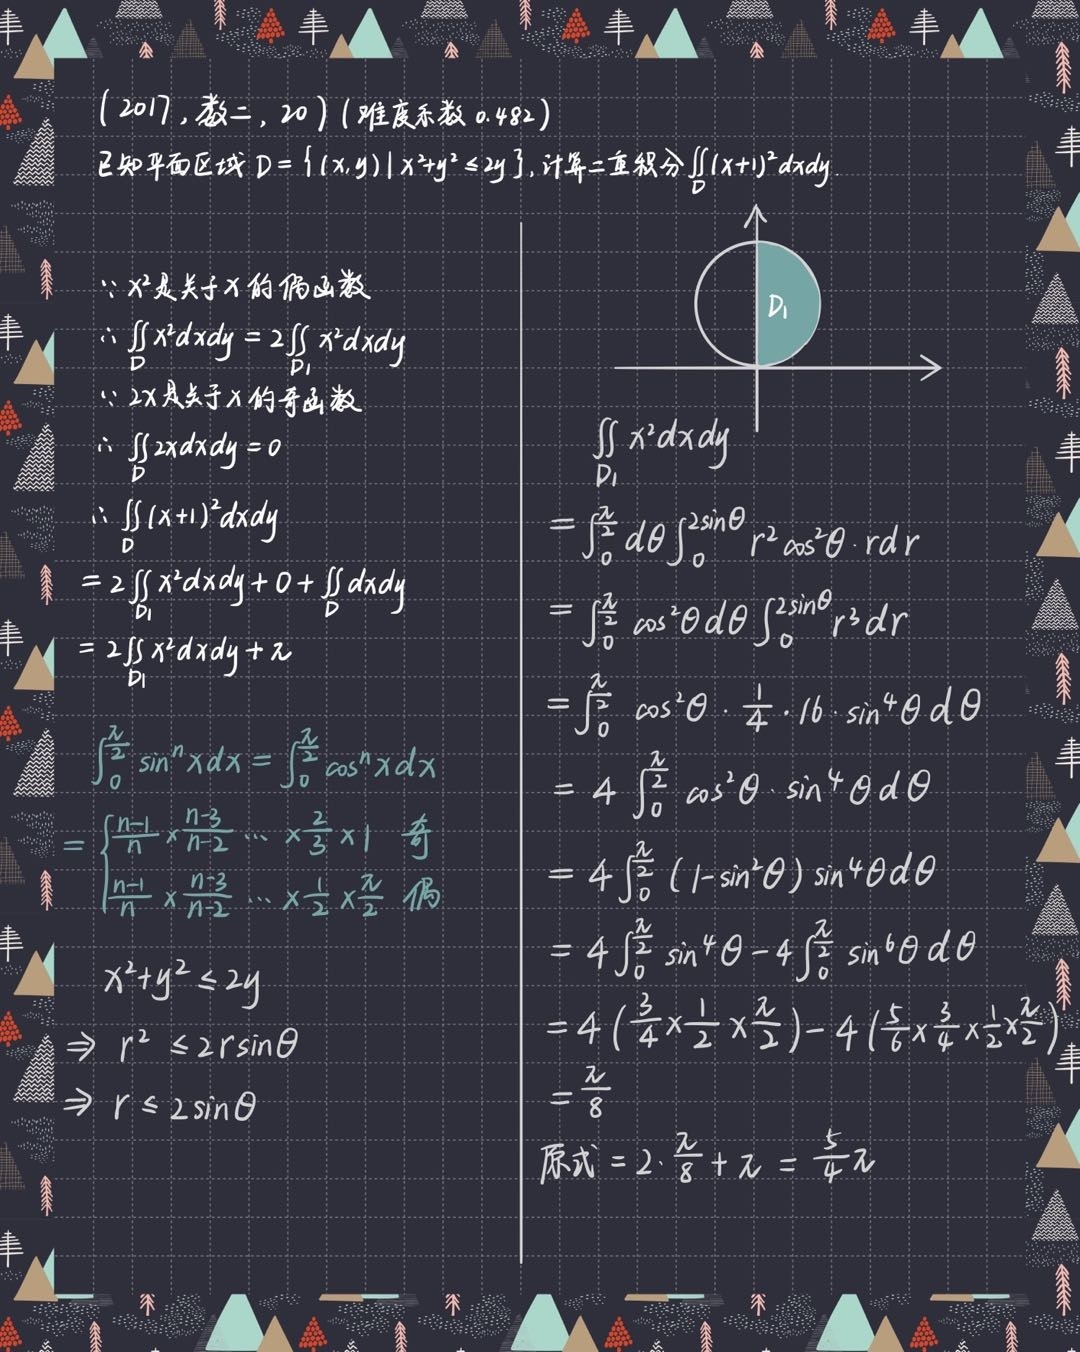 (2017,数二,20)(难度系数0.482)
已知平面区域 D={(x,y)|x²+y²≤2y},计算二重积分∬_D(x+1)²dxdy.
∵ x²是关于x的偶函数
∴ ∬_D x²dxdy=2∬_D₁ x²dxdy
∵ 2x是关于x的奇函数
∴ ∬_D 2xdxdy=0
∴ ∬_D(x+1)²dxdy
=2∬_D₁ x²dxdy+0+∬_D dxdy
=2∬_D₁ x²dxdy+π
∫₀^(π/2) sinⁿxdx=∫₀^(π/2) cosⁿxdx
={ (n-1)/n × (n-3)/(n-2) ··· × 2/3 × 1 奇
(n-1)/n × (n-3)/(n-2) ··· × 1/2 × π/2 偶
x²+y²≤2y
⇒ r² ≤2rsinθ
⇒ r≤2sinθ
D₁
∬_D₁ x²dxdy
=∫₀^(π/2) dθ∫₀^(2sinθ) r²cos²θ·rdr
=∫₀^(π/2) cos²θdθ∫₀^(2sinθ) r³dr
=∫₀^(π/2) cos²θ·1/4·16·sin⁴θdθ
=4∫₀^(π/2) cos²θ·sin⁴θdθ
=4∫₀^(π/2)(1-sin²θ)sin⁴θdθ
=4∫₀^(π/2) sin⁴θ-4∫₀^(π/2) sin⁶θdθ
=4(3/4×1/2×π/2)-4(5/6×3/4×1/2×π/2)
=π/8
原式=2·π/8+π=5/4π